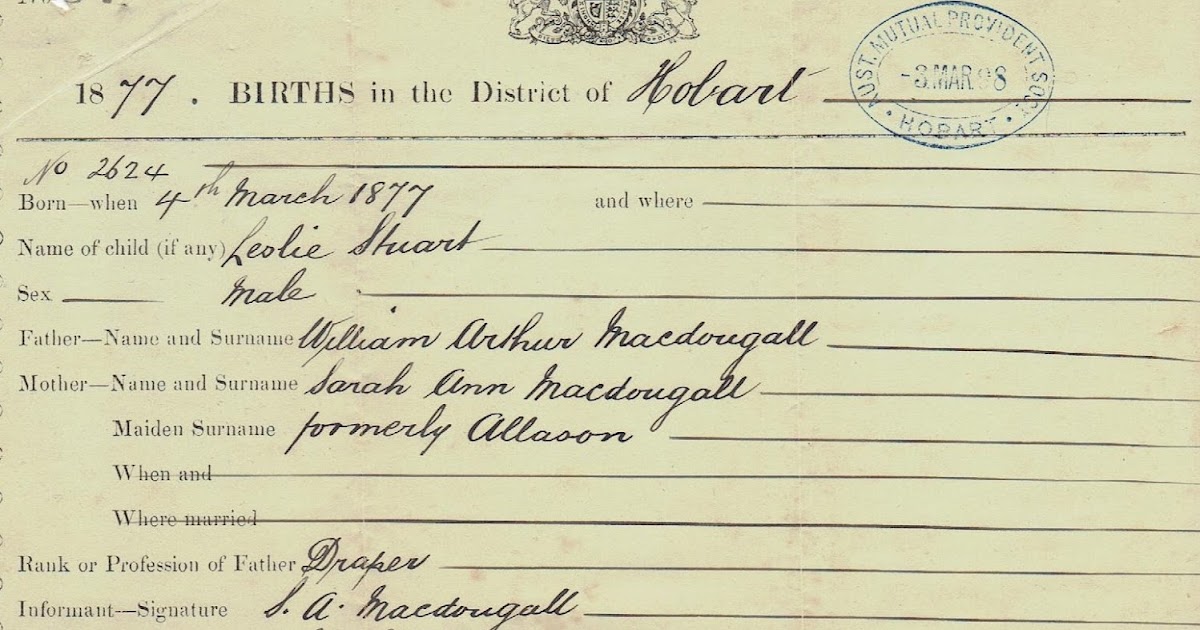 1877. BIRTHS in the District of Hobart
AUST. MUTUAL PROVIDENT SOCY
-3.MAR.98
• HOBART •
No 2624
Born—when 4th March 1877 and where
Name of child (if any) Leslie Stuart
Sex Male
Father—Name and Surname William Arthur Macdougall
Mother—Name and Surname Sarah Ann Macdougall
Maiden Surname formerly Allason
When and
Where married
Rank or Profession of Father Draper
Informant—Signature S. A. Macdougall